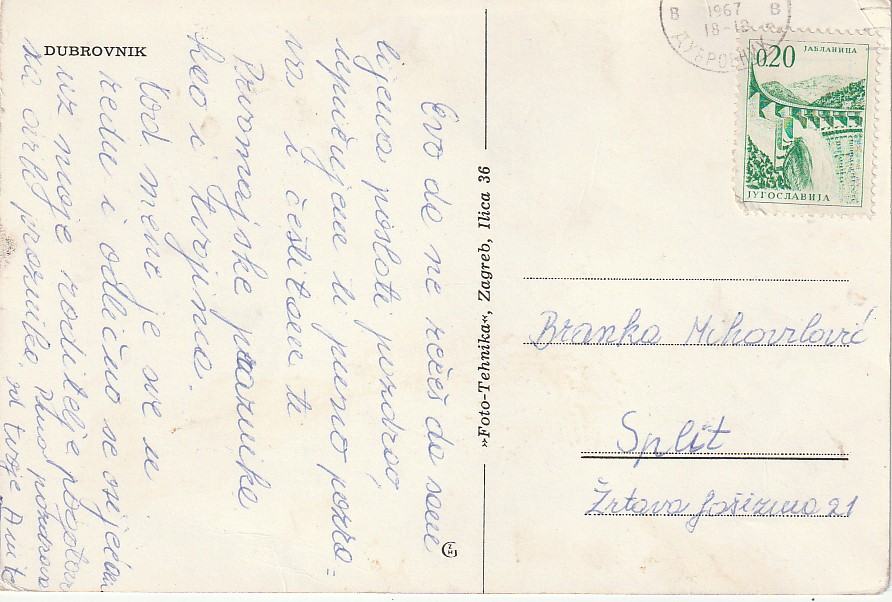 DUBROVNIK
Evo da ne rečeš da sam
lijena poslati pozdrav
upućujem ti puno pozdra-
va i čestitam ti
Prvomajske praznike
kao i tvojima.
Kod mene je sve u
redu i odlično se osjećam
uz moje roditelje
za ove praznike. Puno pozdrava
od tvoje Anite
»Foto-Tehnika«, Zagreb, Ilica 36
В 1967 В
18-
ДУБРОВНИК
0.20
ЈАБЛАНИЦА
ЈУГОСЛАВИЈА
Branka Mihovilović
Split
Žrtava fašizma 21